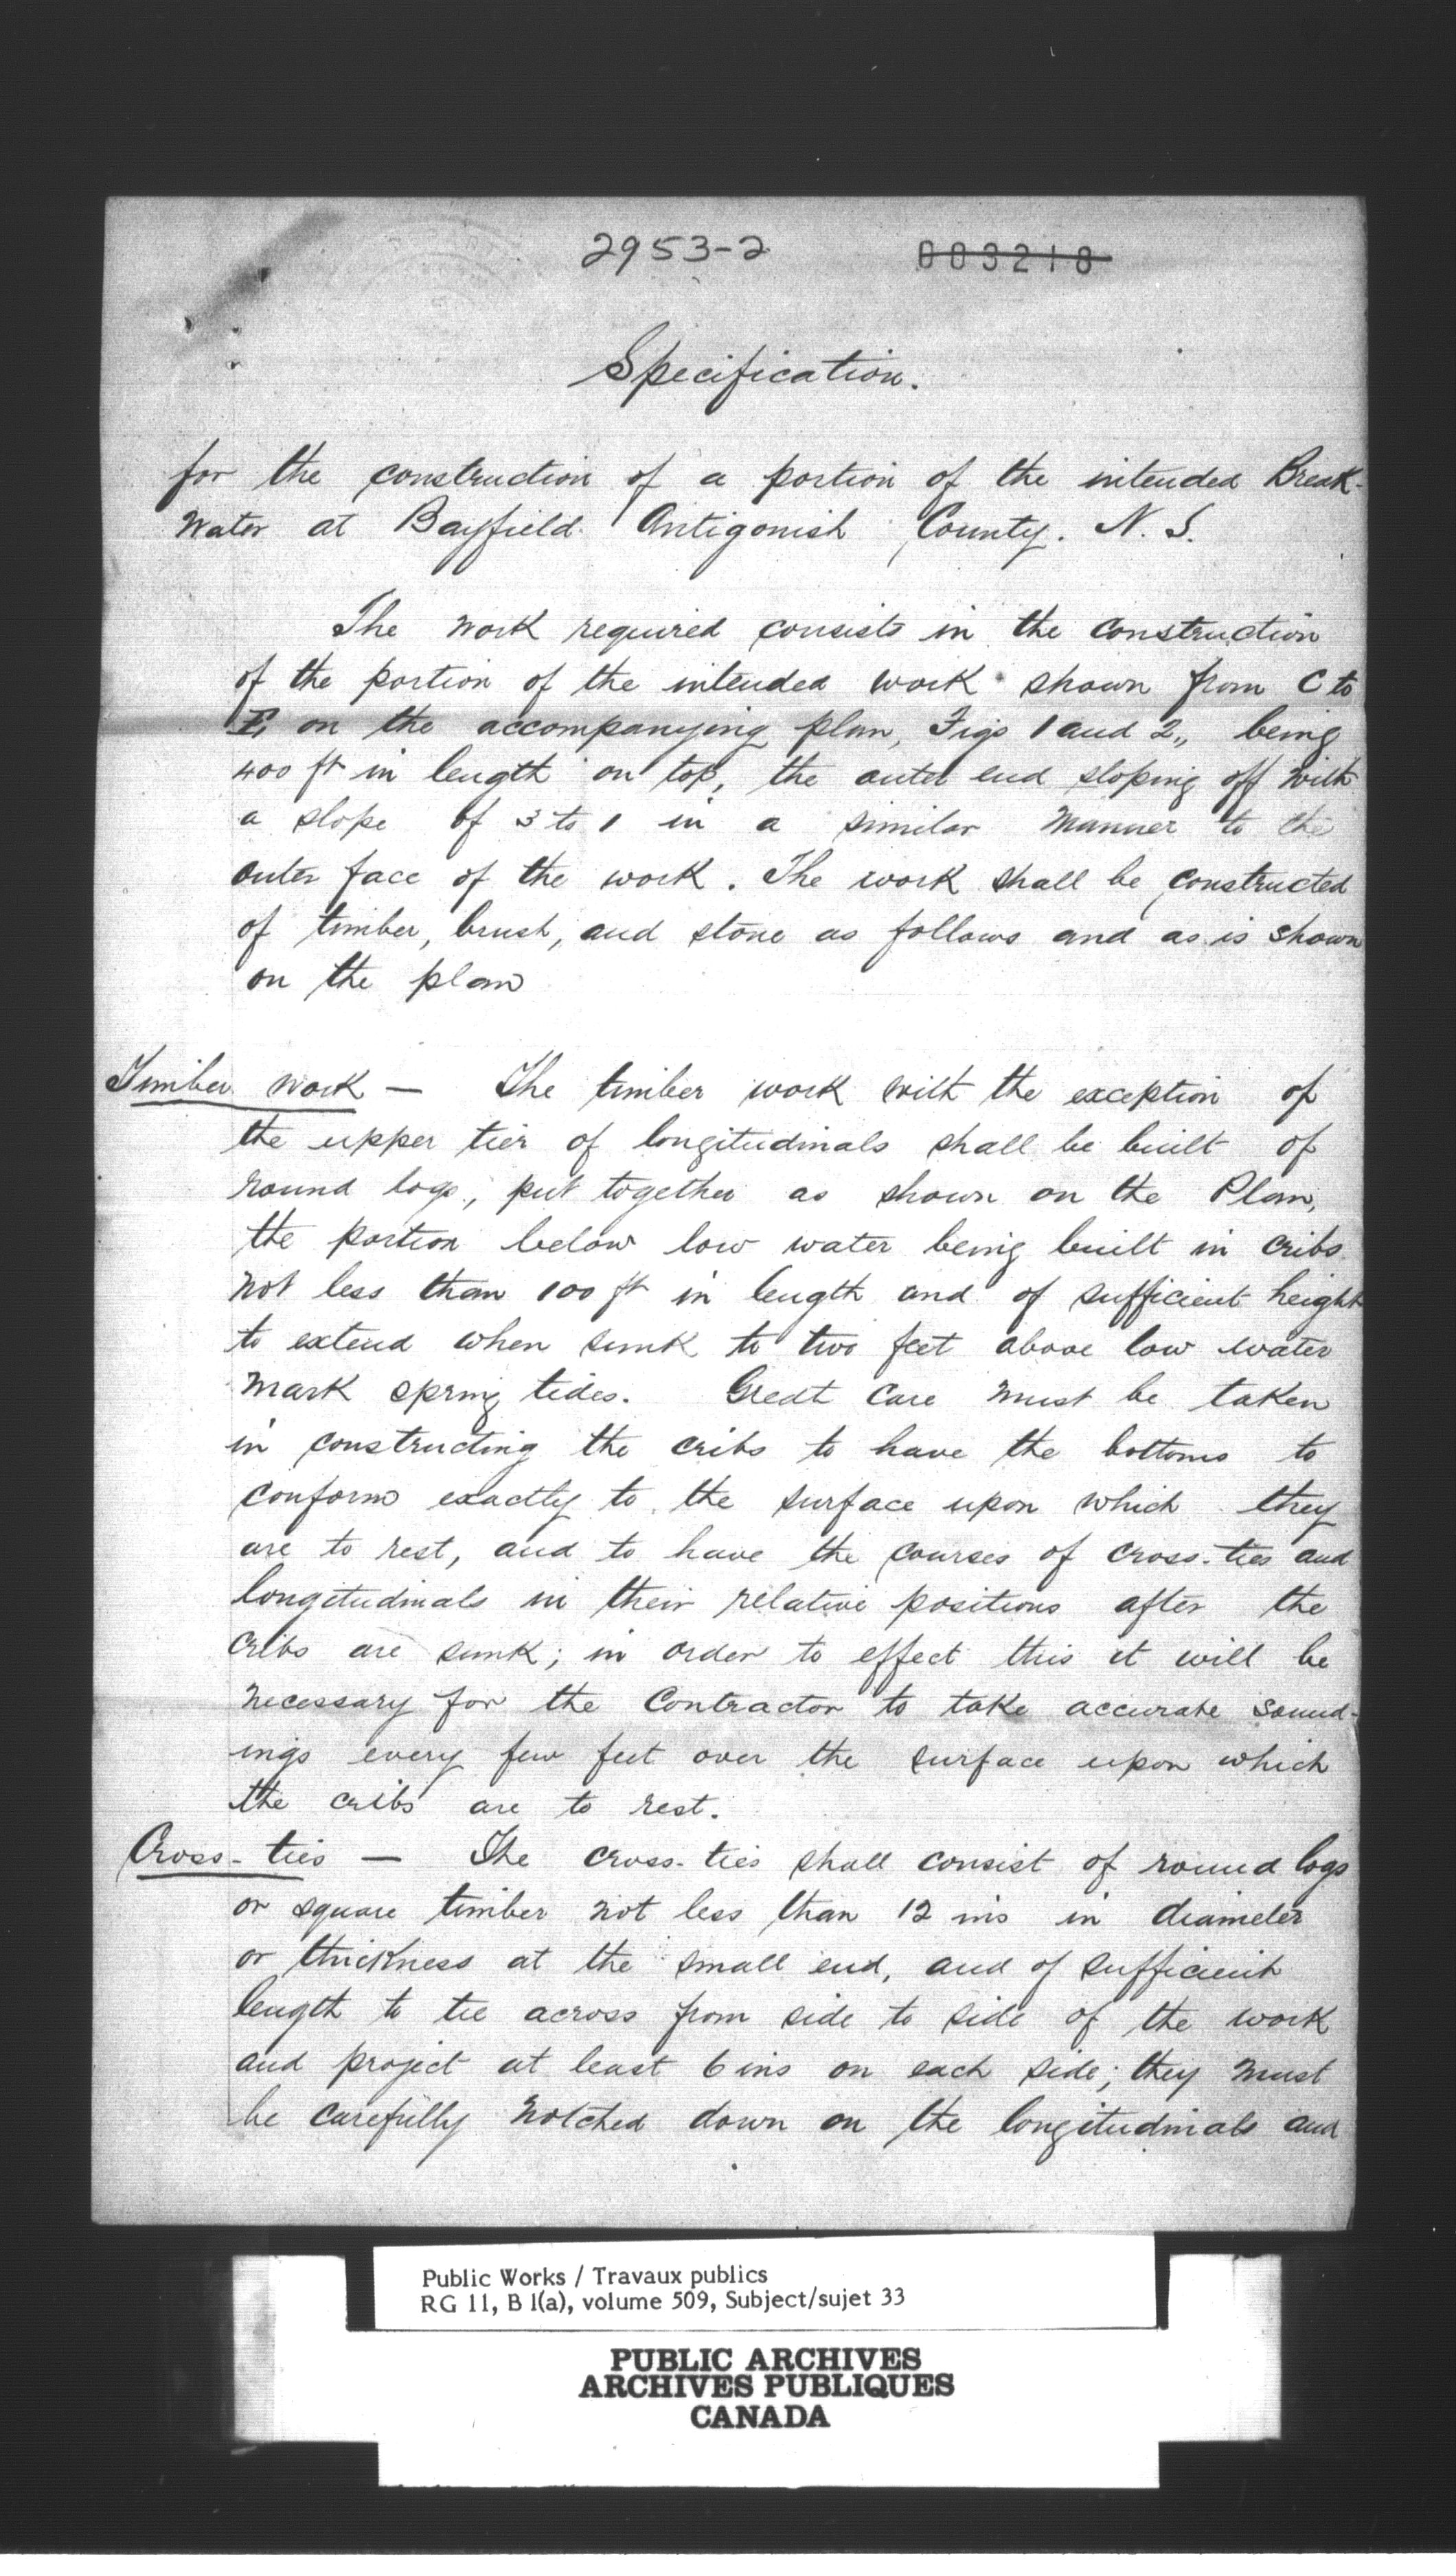 2953-2 003218
Specification.
for the construction of a portion of the intended Break-
water at Bayfield Antigonish County. N. S.
The work required consists in the construction
of the portion of the intended work shown from C to
E, on the accompanying plan, Figs 1 and 2., being
400 ft in length on top, the outer end sloping off with
a slope of 3 to 1 in a similar manner to the
outer face of the work. The work shall be constructed
of timber, brush, and stone as follows and as is shown
on the plan
Timber work — The timber work with the exception of
the upper tier of longitudinals shall be built of
round logs, put together as shown on the Plan,
the portion below low water being built in cribs
not less than 100 ft in length and of sufficient height
to extend when sunk to two feet above low water
mark spring tides. Great care must be taken
in constructing the cribs to have the bottoms to
conform exactly to the surface upon which they
are to rest, and to have the courses of cross-ties and
longitudinals in their relative positions after the
cribs are sunk; in order to effect this it will be
necessary for the Contractor to take accurate sound-
ings every few feet over the surface upon which
the cribs are to rest.
Cross-ties — The cross-ties shall consist of round logs
or square timber not less than 12 ins in diameter
or thickness at the small end, and of sufficient
length to tie across from side to side of the work
and project at least 6 ins on each side; they must
be carefully notched down on the longitudinals and
Public Works / Travaux publics
RG 11, B 1(a), volume 509, Subject/sujet 33
PUBLIC ARCHIVES
ARCHIVES PUBLIQUES
CANADA